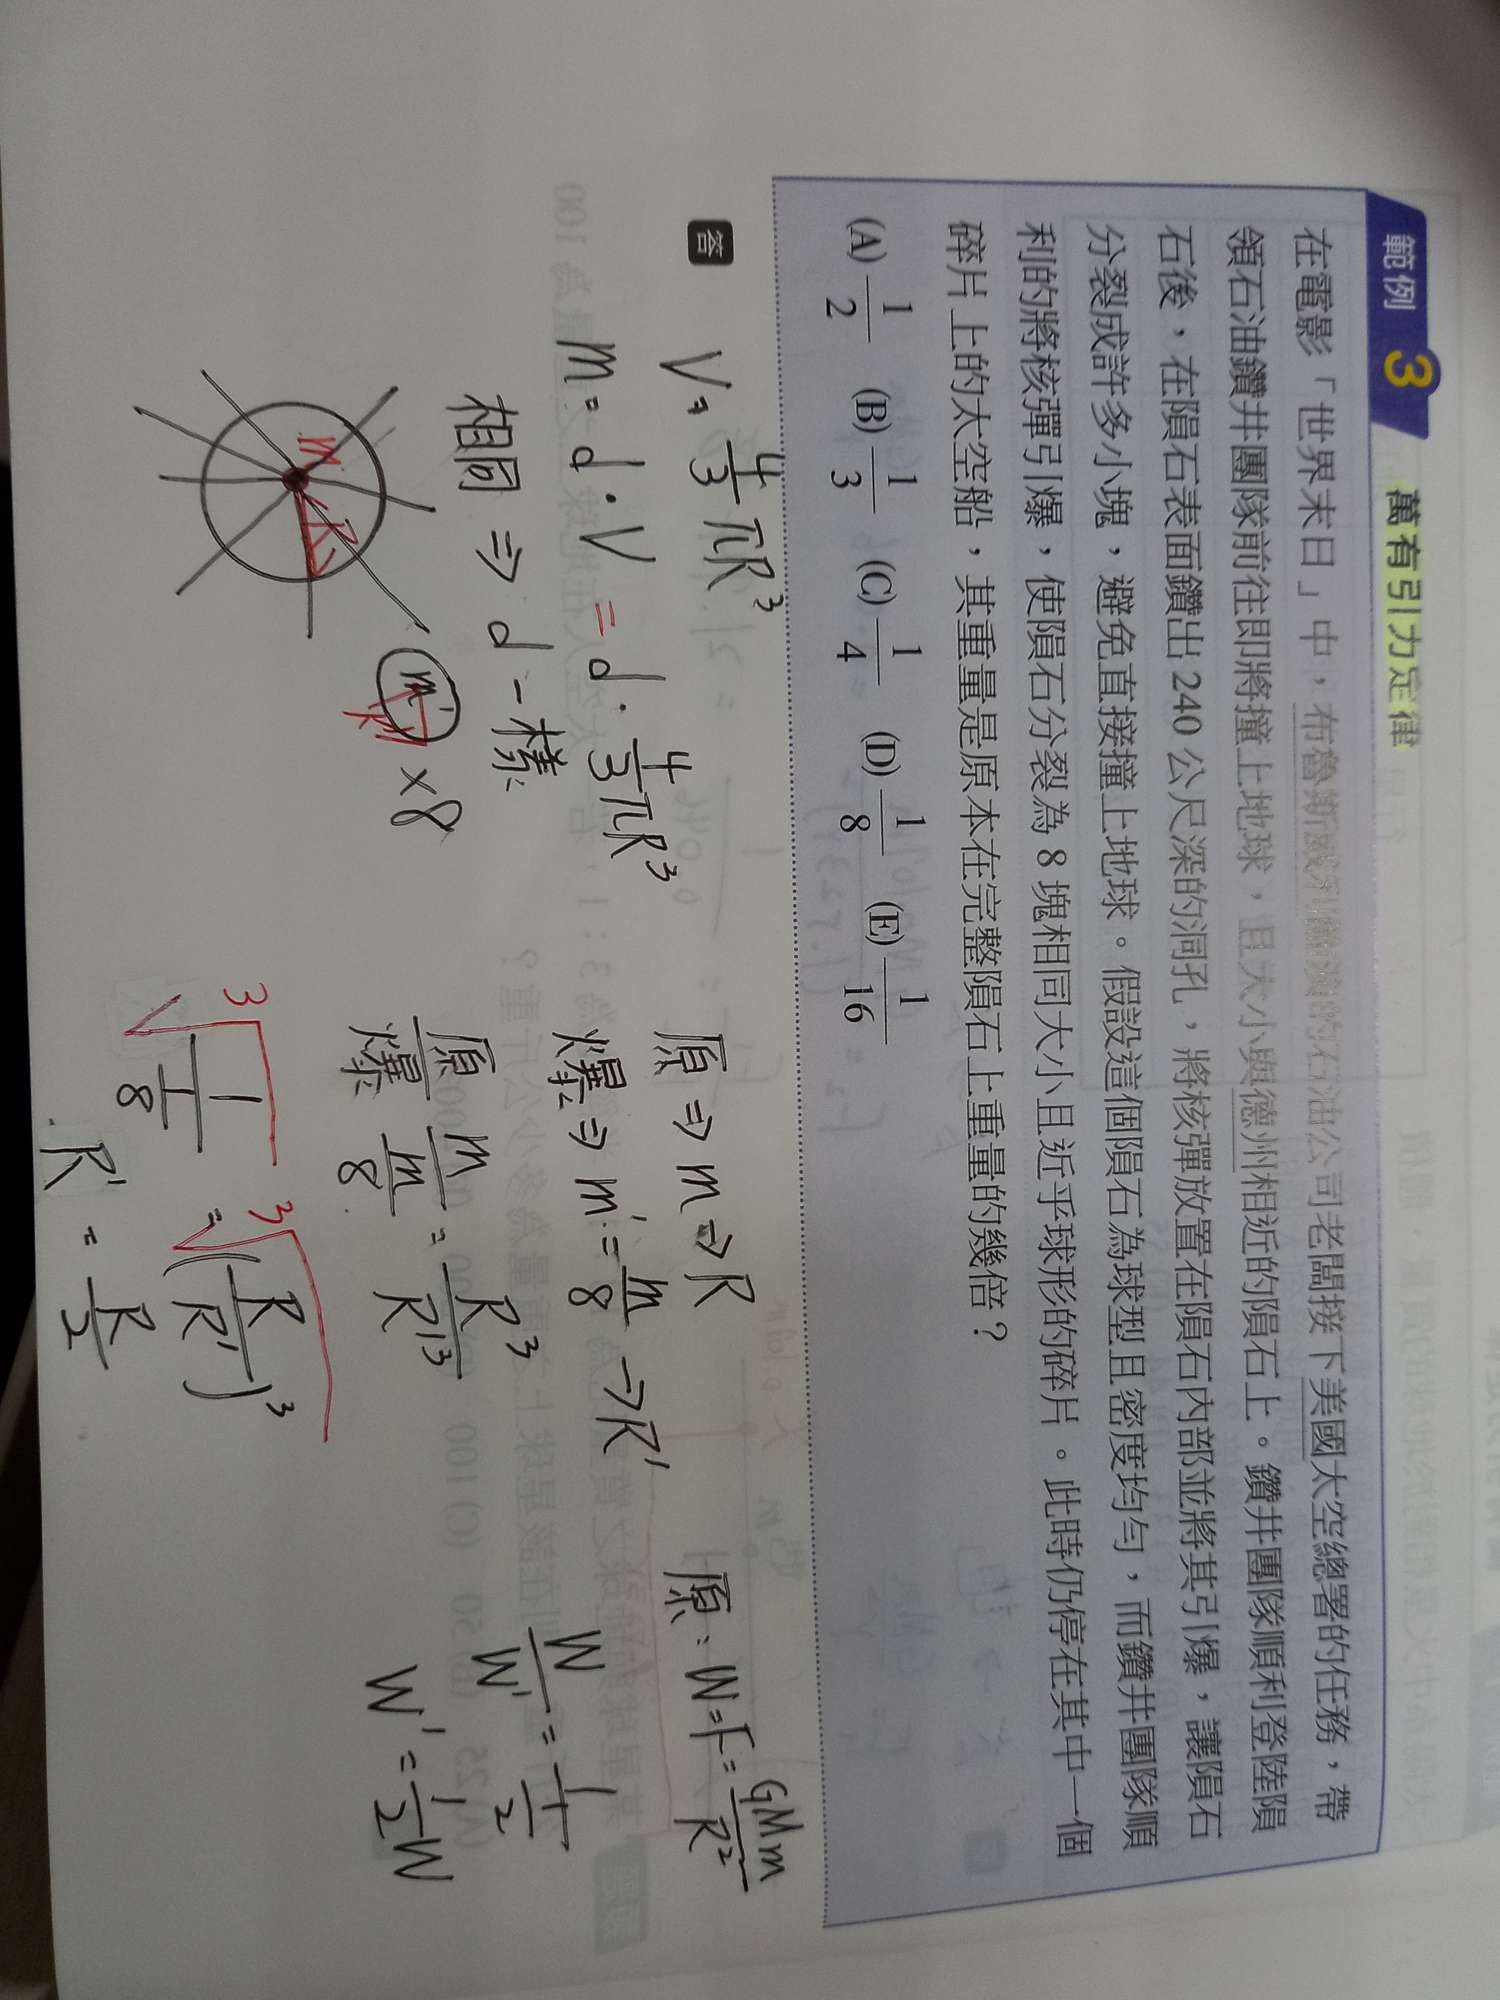 範例 3 萬有引力定律
在電影「世界末日」中，布魯斯威利飾演的石油公司老闆接下美國太空總署的任務，帶
領石油鑽井團隊前往即將撞上地球，且大小與德州相近的隕石上。鑽井團隊順利登陸隕
石後，在隕石表面鑽出 240 公尺深的洞孔，將核彈放置在隕石內部並將其引爆，讓隕石
分裂成許多小塊，避免直接撞上地球。假設這個隕石為球型且密度均勻，而鑽井團隊順
利的將核彈引爆，使隕石分裂為 8 塊相同大小且近乎球形的碎片。此時仍停在其中一個
碎片上的太空船，其重量是原本在完整隕石上重量的幾倍？
(A) 1/2 (B) 1/3 (C) 1/4 (D) 1/8 (E) 1/16
答
V = 4/3 πR³
m = d · V = d · 4/3 πR³
相同 ⇒ d 一樣
m R
m' R' × 8
原 ⇒ m → R
爆 ⇒ m' = m/8 → R'
原/爆 m/(m/8) = R³/R'³
³√(1/8) = ³√(R/R')³
R' = R/2
原: W = F = GMm/R²
W/W' = 1/2
W' = 1/2 W